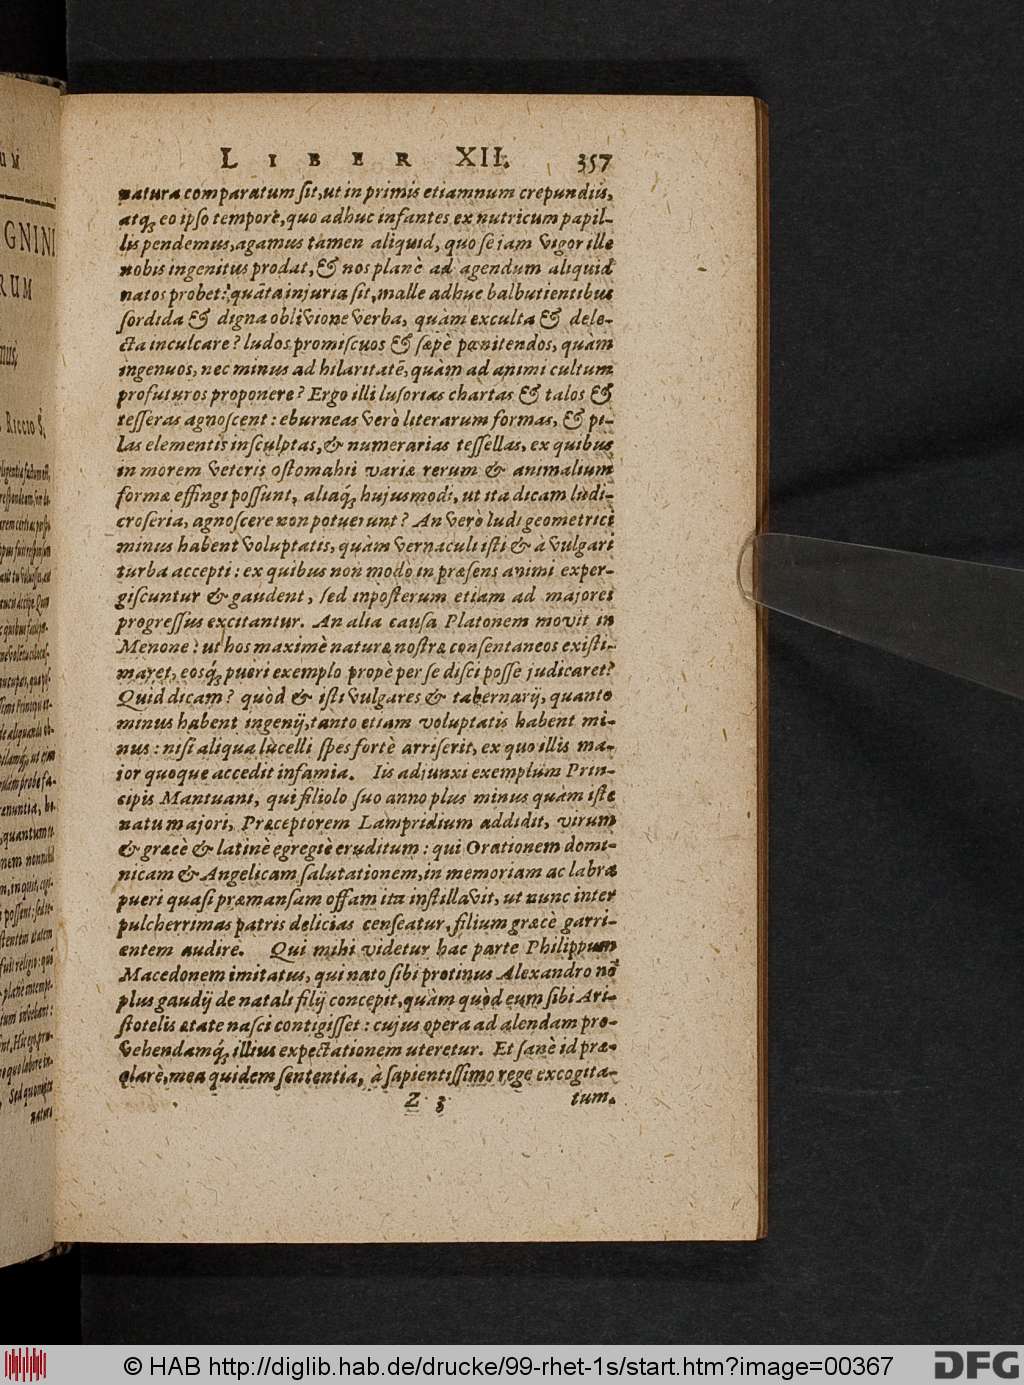 LIBER XII. 357
natura comparatum sit, ut in primis etiamnum crepundiis,
atq; eo ipso temporè, quo adhuc infantes ex nutricum papil-
lis pendemus, agamus tamen aliquid, quo se jam vigor ille
nobis ingenitus prodat, & nos planè ad agendum aliquid
natos probet: quāta injuria sit, malle adhuc balbutientibus
sordida & digna oblivione verba, quàm exculta & dele-
cta inculcare? ludos promiscuos & sæpè pœnitendos, quàm
ingenuos, nec minus ad hilaritatē, quàm ad animi cultum
profuturos proponere? Ergo illi lusorias chartas & talos &
tesseras agnoscent: eburneas verò literarum formas, & pi-
las elementis insculptas, & numerarias tessellas, ex quibus
in morem veteris ostomahii variæ rerum & animalium
formæ effingi possunt, aliaq́; hujusmodi, ut ita dicam ludi-
croseria, agnoscere non potuerunt? An verò ludi geometrici
minus habent voluptatis, quàm vernaculi isti & à vulgari
turba accepti: ex quibus non modò in præsens animi exper-
giscuntur & gaudent, sed inposterum etiam ad majores
progressus excitantur. An alia causa Platonem movit in
Menone? ut hos maximè naturæ nostræ consentaneos existi-
maret, eosq́; pueri exemplo propè per se disci posse judicaret?
Quid dicam? quòd & isti vulgares & tabernarij, quanto
minus habent ingenij, tanto etiam voluptatis habent mi-
nus: nisi aliqua lucelli spes fortè arriserit, ex quo illis ma-
ior quoque accedit infamia. Iis adjunxi exemplum Prin-
cipis Mantuani, qui filiolo suo anno plus minus quàm iste
natu majori, Præceptorem Lampridium addidit, virum
& græcè & latinè egregiè eruditum: qui Orationem domi-
nicam & Angelicam salutationem, in memoriam ac labra
pueri quasi præmansam offam ita instillavit, ut nunc inter
pulcherrimas patris delicias censeatur, filium græcè garri-
entem audire. Qui mihi videtur hac parte Philippum
Macedonem imitatus, qui nato sibi protinus Alexandro nō
plus gaudij de natali filij concepit, quàm quòd eum sibi Ari-
stotelis ætate nasci contigisset: cujus opera ad alendam pro-
vehendamq́; illius expectationem uteretur. Et sanè id præ-
clarè, mea quidem sententia, à sapientissimo rege excogita-
Z 3 tum.
© HAB http://diglib.hab.de/drucke/99-rhet-1s/start.htm?image=00367
DFG